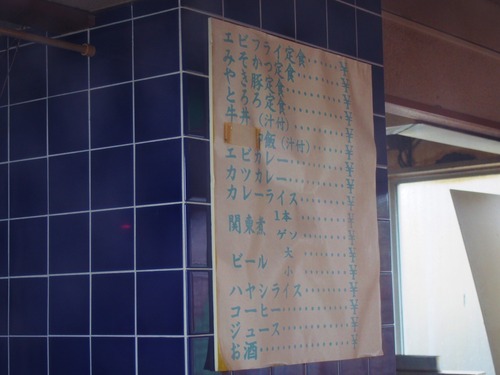 エビフライ定食……¥
みそかつ定食……¥
やき豚定食……¥
とろろ定食……¥
牛丼(汁付)……¥
飯(汁付)……¥
エビカレー……¥
カツカレー……¥
カレーライス……¥
関東煮 1本……¥
ゲソ……¥
ビール 大……¥
小……¥
ハヤシライス……¥
コーヒー……¥
ジュース……¥
お酒……¥